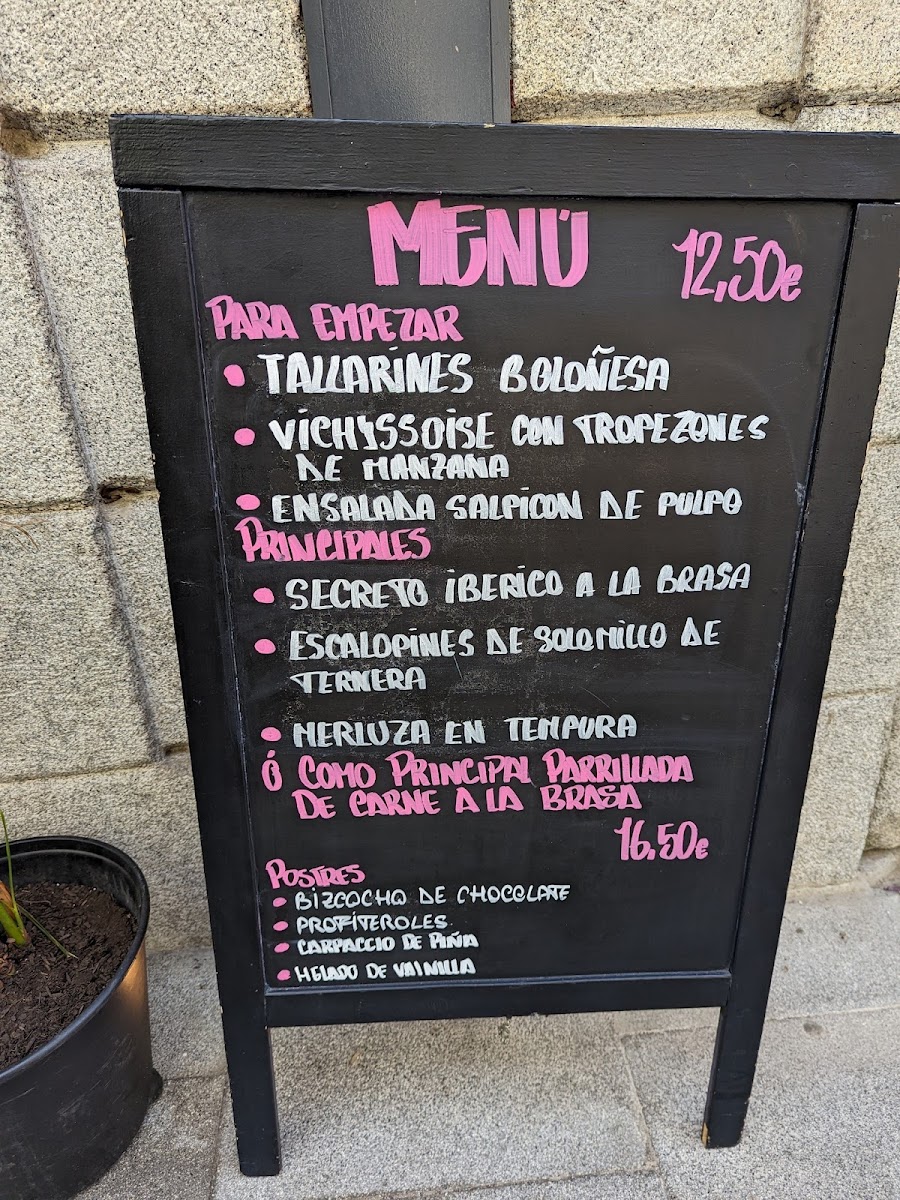 MENÚ
12,50€
PARA EMPEZAR
• TALLARINES BOLOÑESA
• VICHYSSOISE CON TROPEZONES
DE MANZANA
• ENSALADA SALPICON DE PULPO
PRINCIPALES
• SECRETO IBERICO A LA BRASA
• ESCALOPINES DE SOLOMILLO DE
TERNERA
• MERLUZA EN TEMPURA
Ó COMO PRINCIPAL PARRILLADA
DE CARNE A LA BRASA
16.50€
POSTRES
• BIZCOCHO DE CHOCOLATE
• PROFITEROLES.
• CARPACCIO DE PIÑA
• HELADO DE VAINILLA